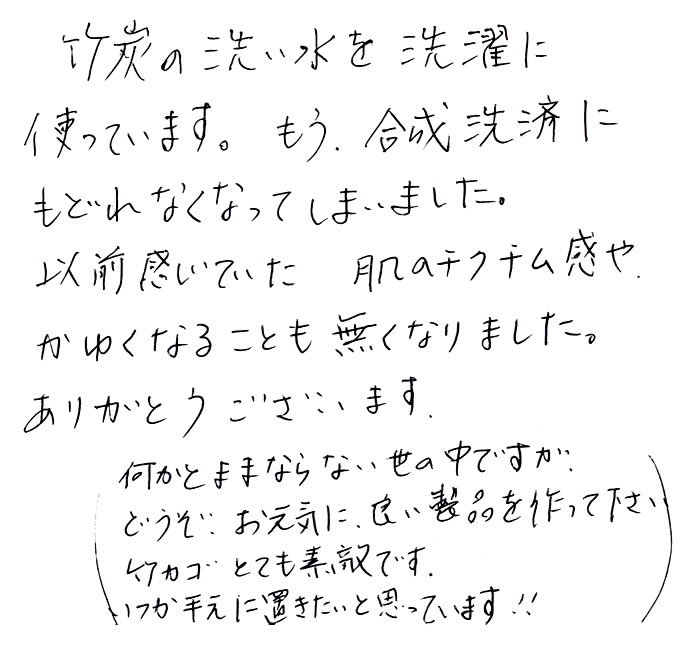 竹炭の洗い水を洗濯に
使っています。もう、合成洗済に
もどれなくなってしまいました。
以前感いていた 肌のチクチム感や、
かゆくなることも無くなりました。
ありがとうございます.
(何かとままならない世の中ですが、
どうぞ、お元気に、良い製品を作って下さい
竹カゴとても素敵です.
いつか手元に置きたいと思っています!!)